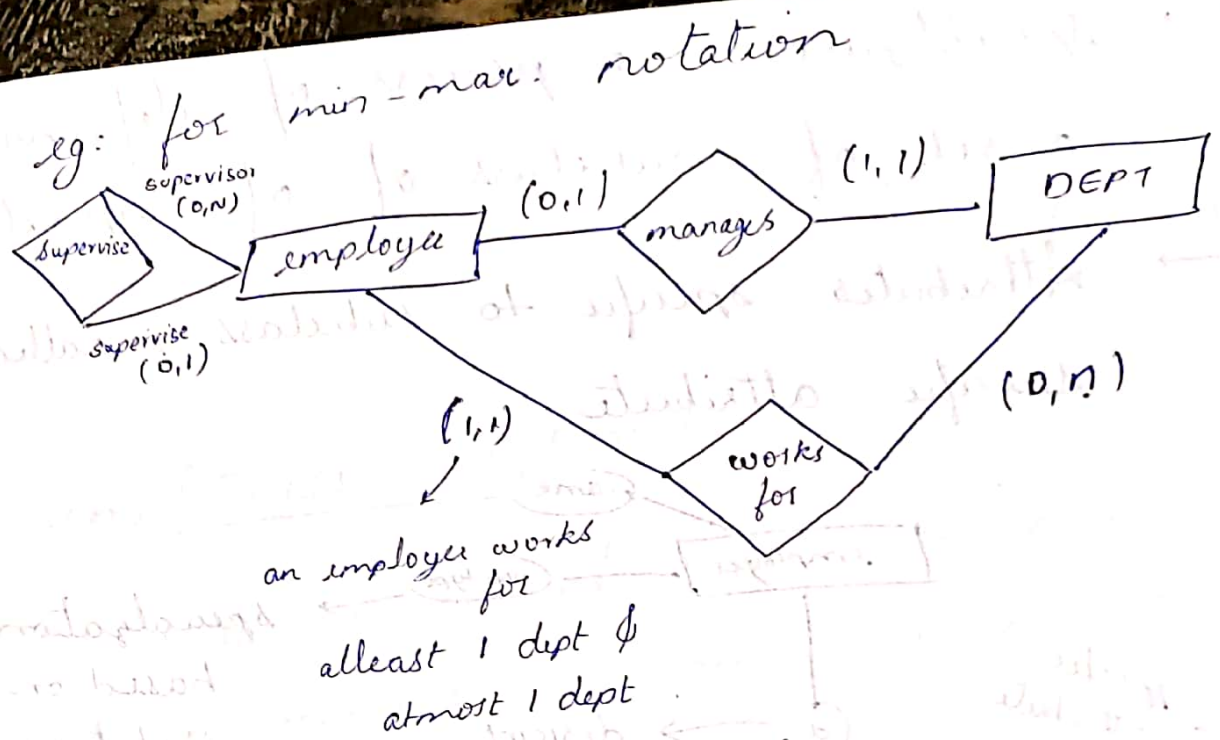 eg: for min-max: notation
supervisor
(0,N)
supervise
supervise
(0,1)
employee
(0,1)
manages
(1,1)
DEPT
(1,1)
works
for
(0,n)
an employee works
for
atleast 1 dept &
atmost 1 dept.